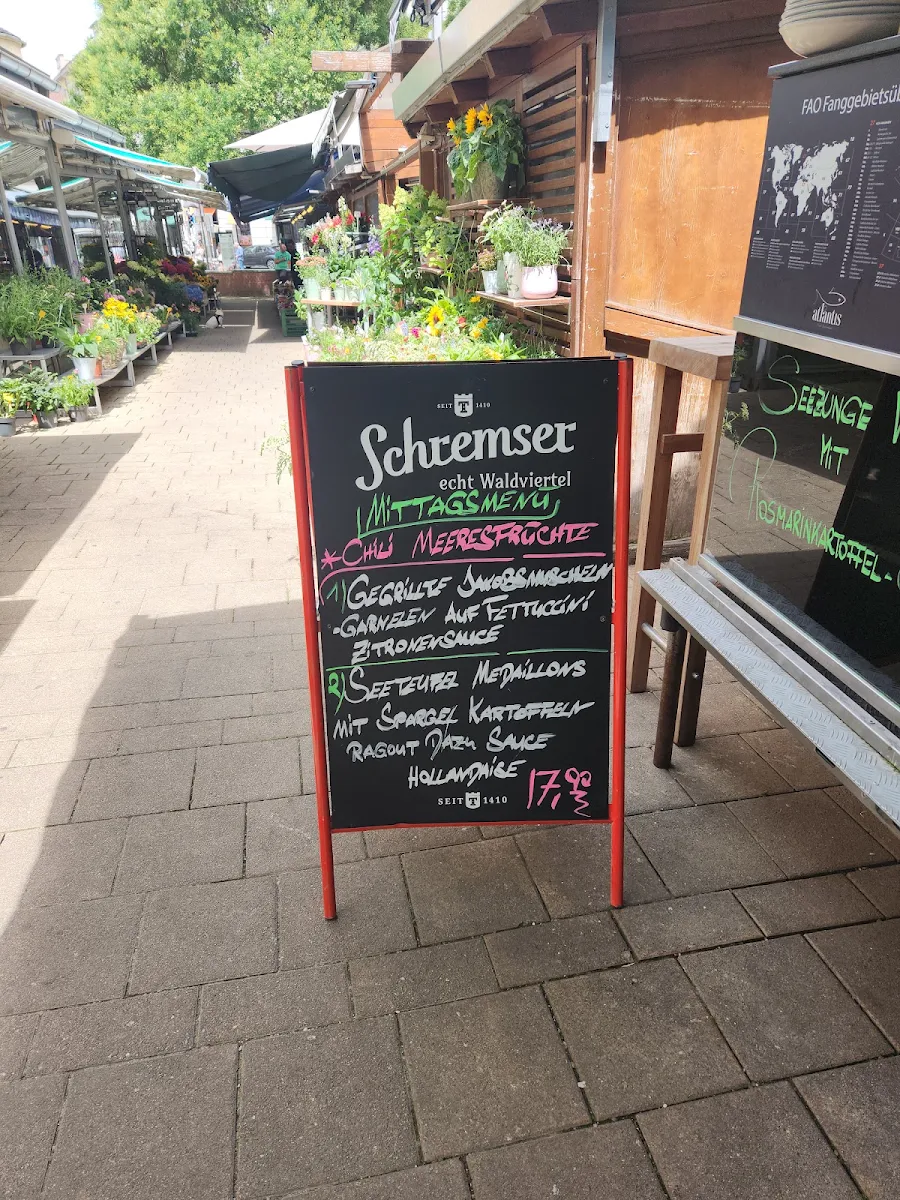 FAO Fanggebietsüb
atlantis
SEEZUNGE
MIT
ROSMARINKARTOFFEL-
SEIT 1410
Schremser
echt Waldviertel
MITTAGSMENÜ
* CHILI MEERESFRÜCHTE
1) GEGRILLTE JAKOBSMUSCHELN
-GARNELEN AUF FETTUCCINI
ZITRONENSAUCE
2) SEETEUFEL MEDAILLONS
MIT SPARGEL KARTOFFELN
RAGOUT DAZU SAUCE
HOLLANDAISE 17,90
SEIT 1410